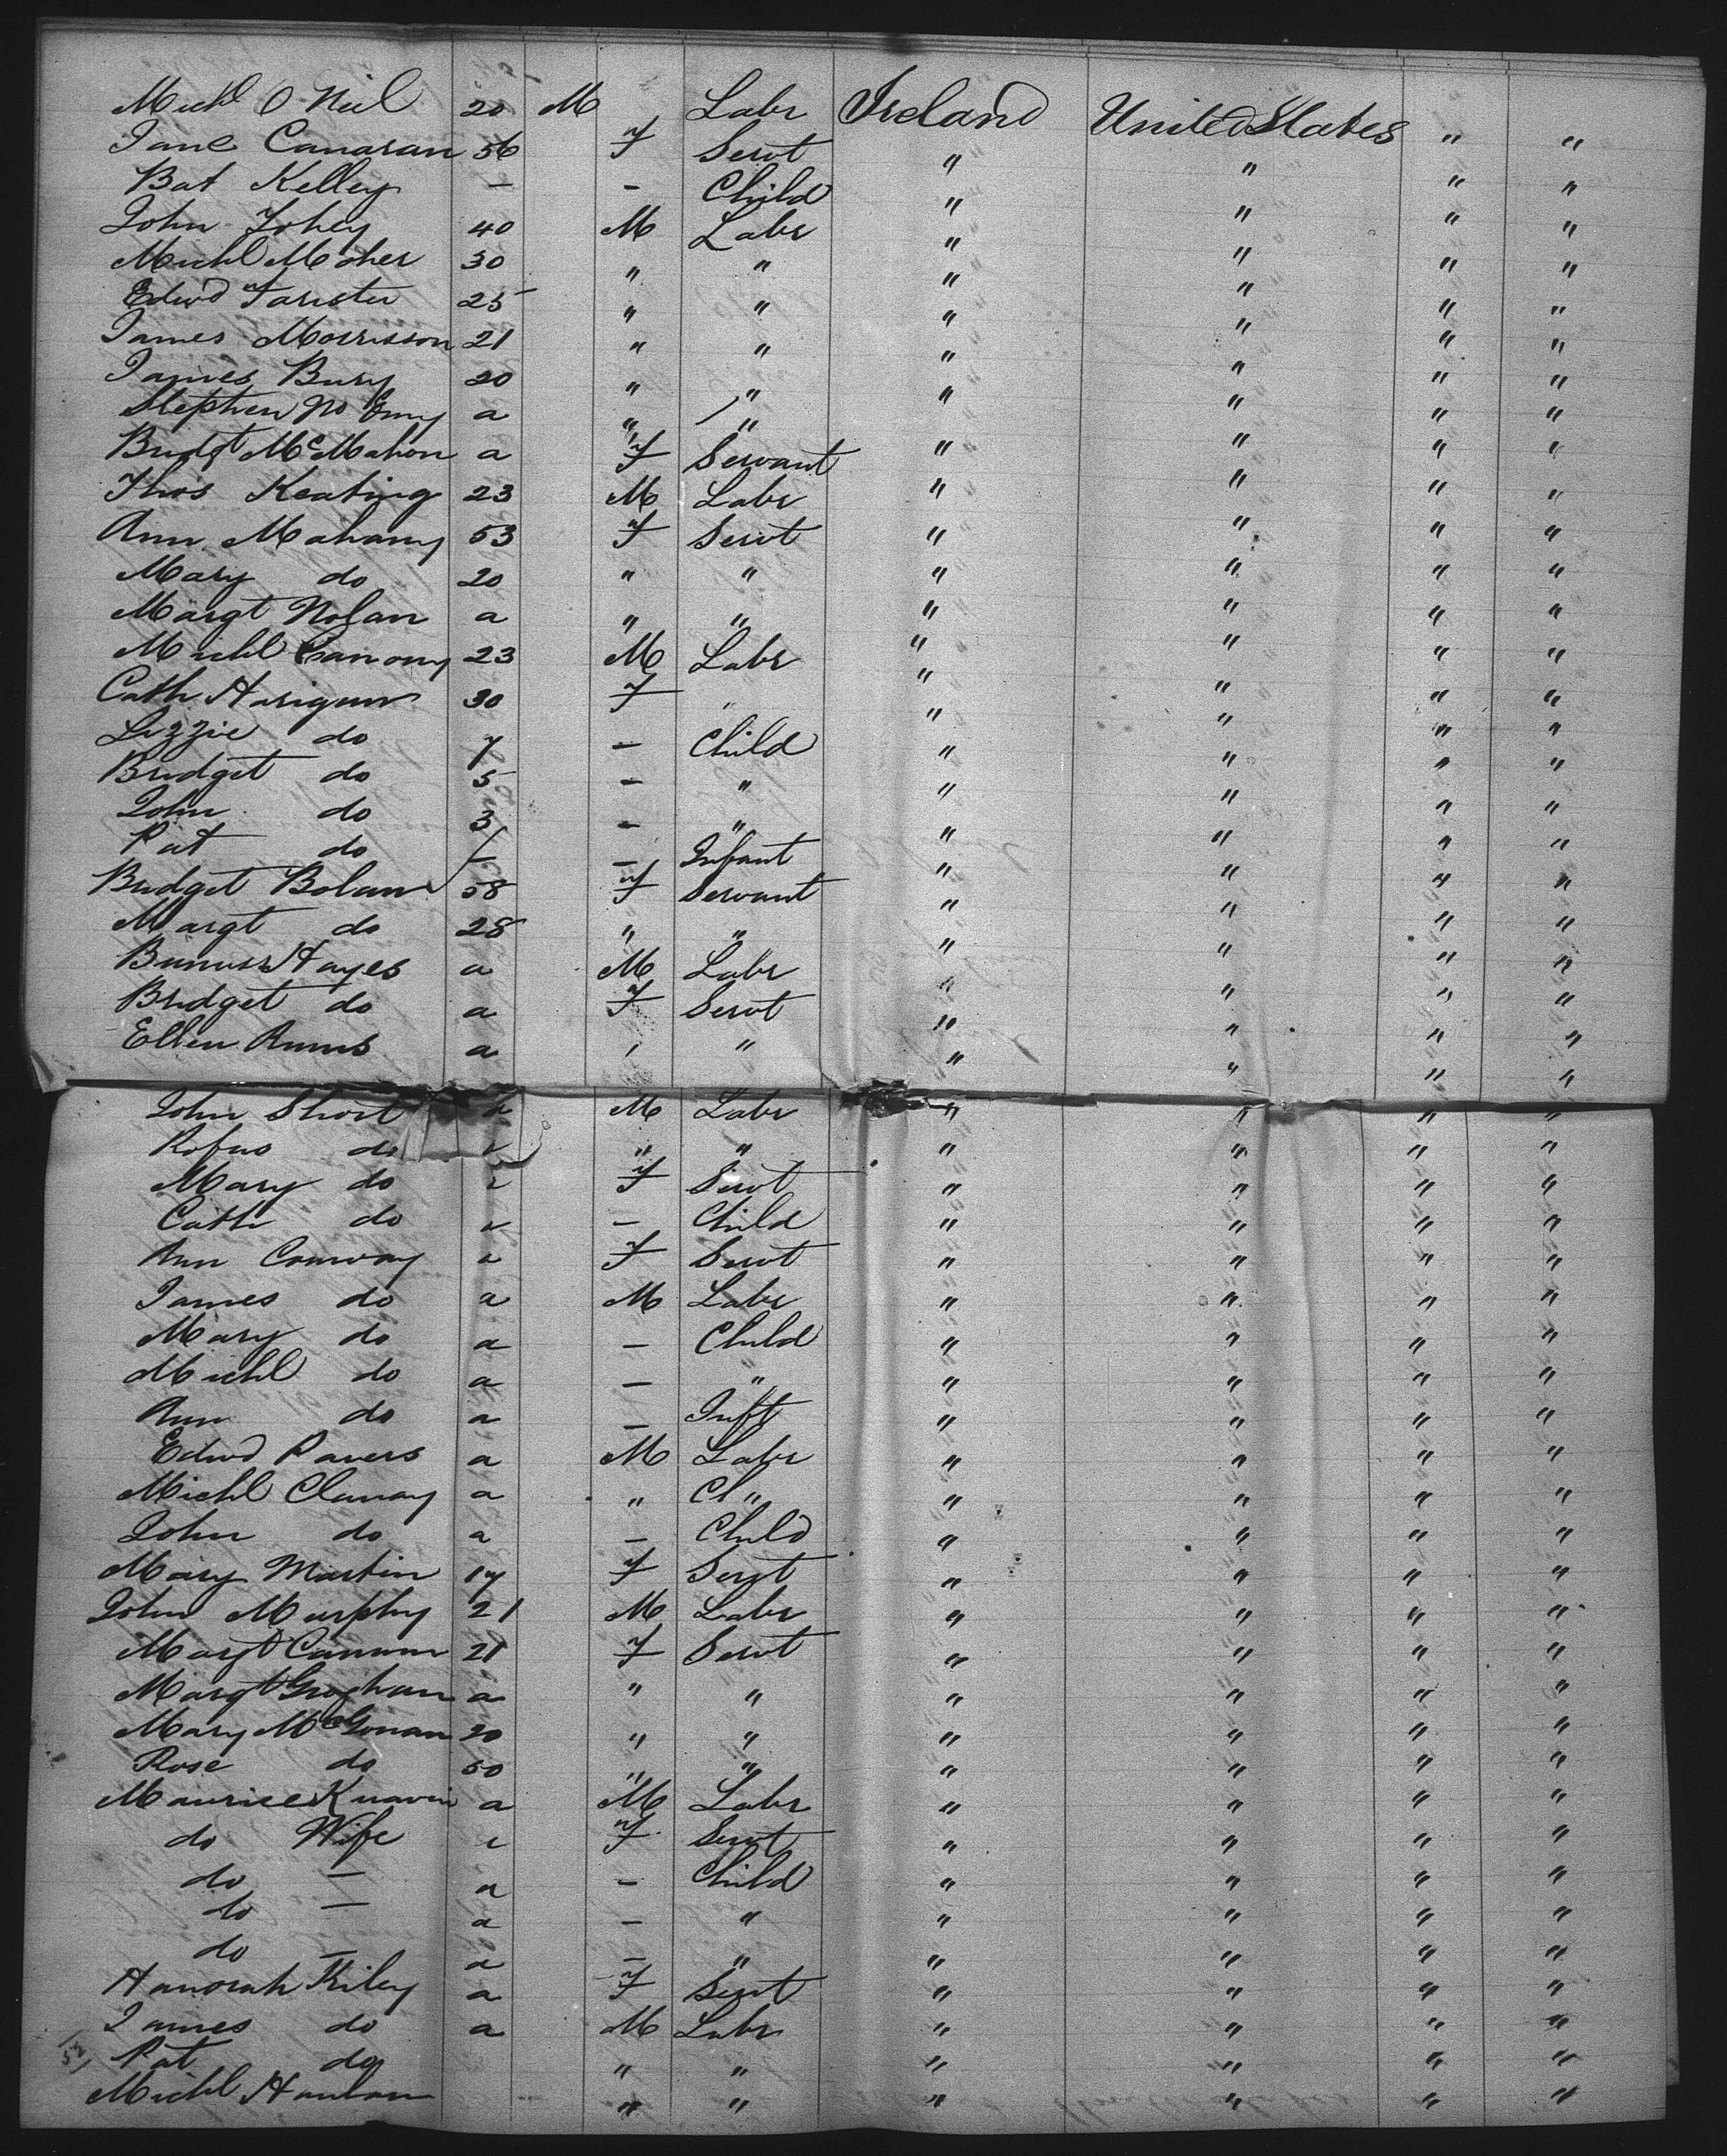 Michl O Neil 20 M Labr Ireland United States " "
Jane Canaran 56 F Servt " " " "
Bat Kelley — — Child " " " "
John Fohey 40 M Labr " " " "
Michl Maher 30 " " " " " "
Edwd Forister 25 " " " " " "
James Morrisson 21 " " " " " "
James Bury 20 " " " " " "
Stephen a " " " " " "
Bridgt McMahon a F Servant " " " "
Thos Keating 23 M Labr " " " "
Ann Mahany 53 F Servt " " " "
Mary do 20 " " " " " "
Margt Nolan a " " " " " "
Michl Canony 23 M Labr " " " "
Cath Harigan 30 F " " " " "
Lizzie do 7 — Child " " " "
Bridget do 5 — " " " " "
John do 3 — " " " " "
Pat do — — Infant " " " "
Bridget Bolan 58 F Servant " " " "
Margt do 28 " " " " " "
Hayes a M Labr " " " "
Bridget do a F Servt " " " "
Ellen a " " " " " "
John Short a M Labr " " " "
Rofus do a " " " " " "
Mary do a F Servt " " " "
Cath do a — Child " " " "
Ann Conway a F Servt " " " "
James do a M Labr " " " "
Mary do a — Child " " " "
Michl do a — " " " " "
Ann do a — Inft " " " "
Edwd Pavers a M Labr " " " "
Michl Clanay a " Ch " " " " "
John do a — Child " " " "
Mary Martin 17 F Servt " " " "
John Murphy 21 M Labr " " " "
Margt Cannon 21 F Servt " " " "
Margt Groghan a " " " " " "
Mary McGowan 20 " " " " " "
Rose do 50 " " " " " "
Maurice a M Labr " " " "
do Wife a F Servt " " " "
do — a — Child " " " "
do — a — " " " " "
do — a — " " " " "
Hanorah Riley a F Servt " " " "
James do a M Labr " " " "
Pat do " " " " " "
Michl Hanlon " " " " " "